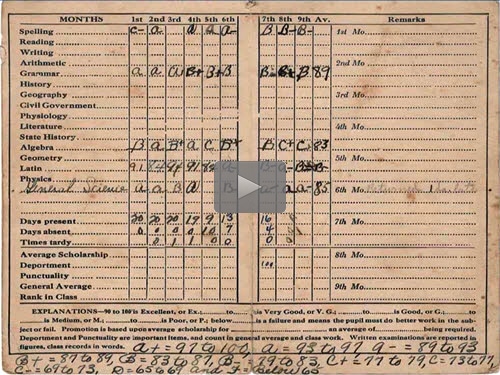 MONTHS 1st 2nd 3rd 4th 5th 6th 7th 8th 9th Av. Remarks
Spelling C- a a a a- B B- B- 1st Mo.
Reading
Writing
Arithmetic 2nd Mo.
Grammar a a a B+ B+ B B- B+ B 89
History
Geography 3rd Mo.
Civil Government
Physiology
Literature 4th Mo.
State History
Algebra B a B+ a C B+ B C+ C 83
Geometry 5th Mo.
Latin 91 91 a- B- a- B-
Physics
General Science a a B a B a a- 85 6th Mo.
Days present 20 20 20 19 9 13 16 7th Mo.
Days absent 0 0 0 0 10 7 4
Times tardy 0 1 1 0 0 0
Average Scholarship 8th Mo.
Deportment 100
Punctuality
General Average 9th Mo.
Rank in Class
EXPLANATIONS—90 to 100 is Excellent, or Ex.; to is Very Good, or V. G.; to is Good, or G.; to
is Medium, or M.; to is Poor, or P.; below is a failure and means the pupil must do better work in the sub-
ject or fail. Promotion is based upon average scholarship for an average of being required.
Deportment and Punctuality are important items, and count in general average and class work. Written examinations are reported in
figures, class records in words. a+ = 97 to 100, a = 93 to 97 a- = 89 to 93
B+ = 87 to 89, B = 83 to 87, B- = 79 to 83, C+ = 77 to 79, C = 73 to 77,
C- = 69 to 73, D = 65 to 69 and F = Below 65